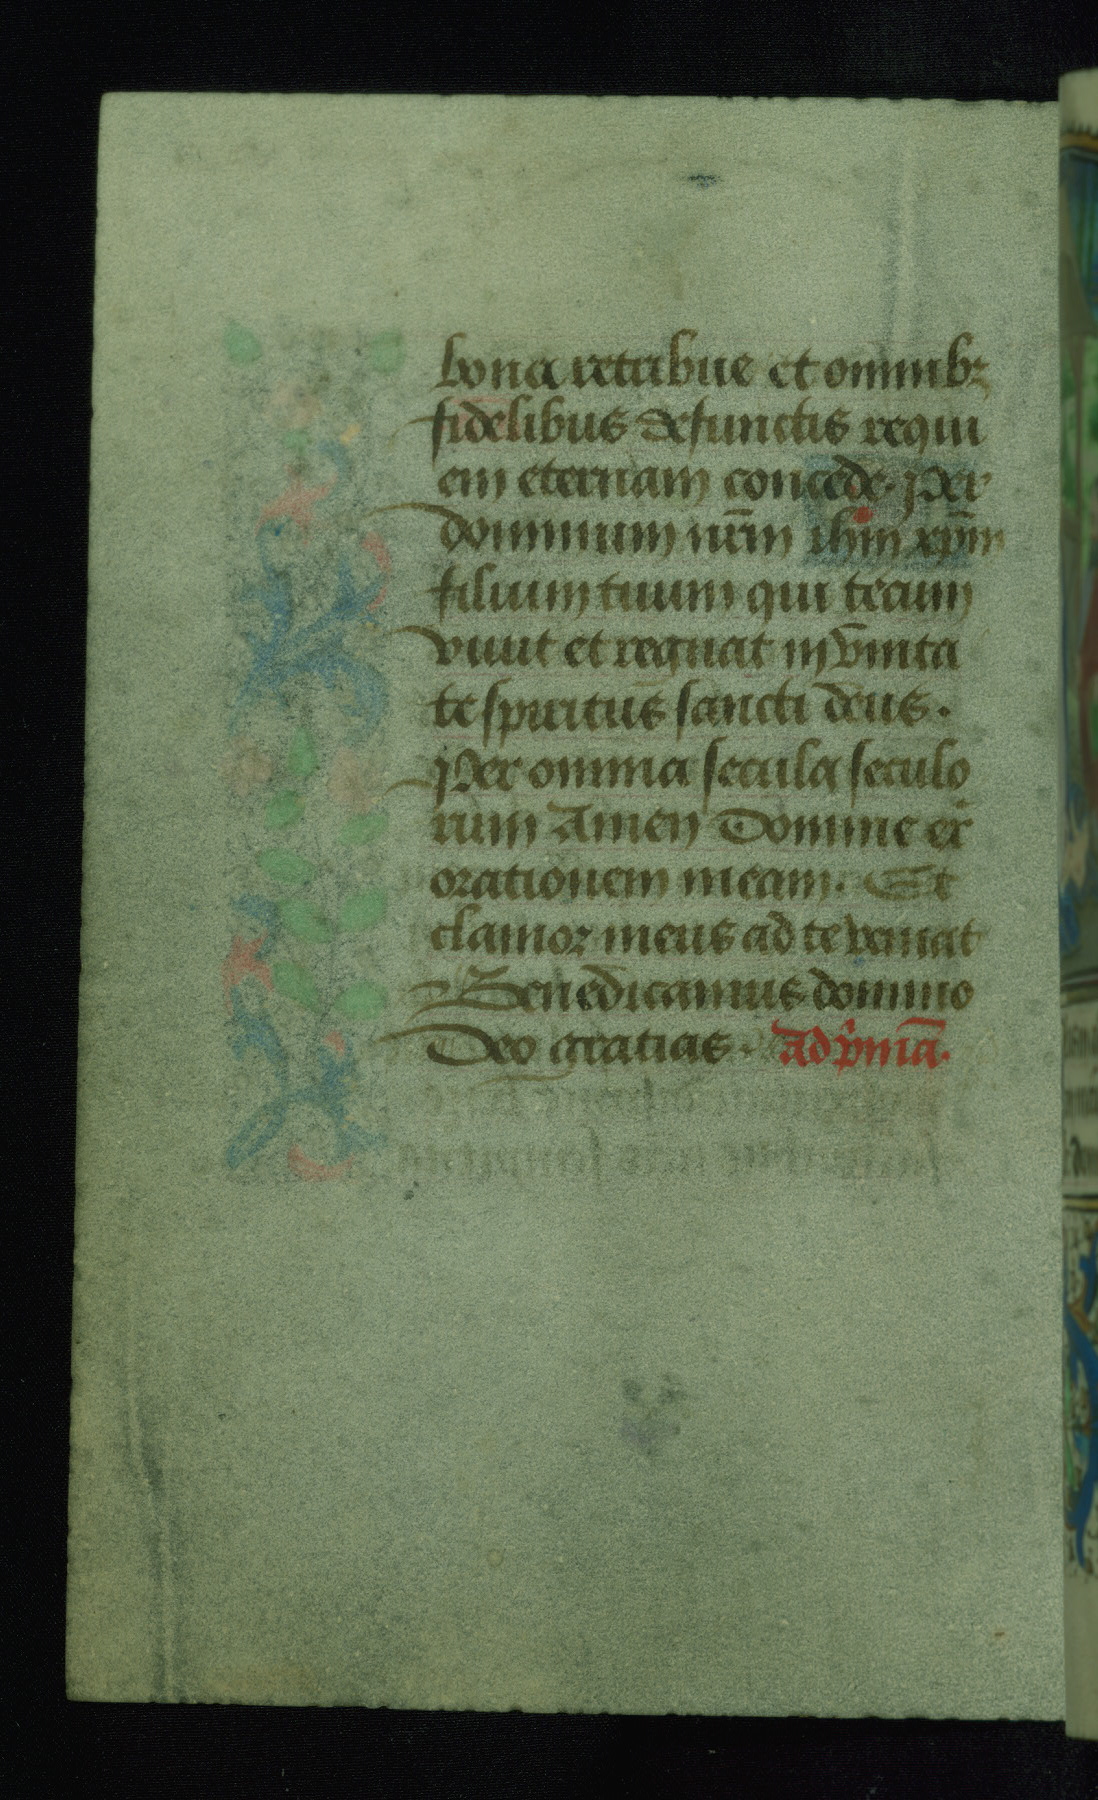 bona retribue et omnibꝫ
fidelibus defunctis requi
em eternam concede. Per
dominum nr̄m ihm̄ xp̄m
filium tuum qui tecum
viuit et regnat in vnita
te spiritus sancti deus.
Per omnia secula seculo
rum Amen Domine ex̄
orationem meam. Et
clamor meus ad te veniat
Benedicamus domino
Deo gratias. Ad p̄mā.